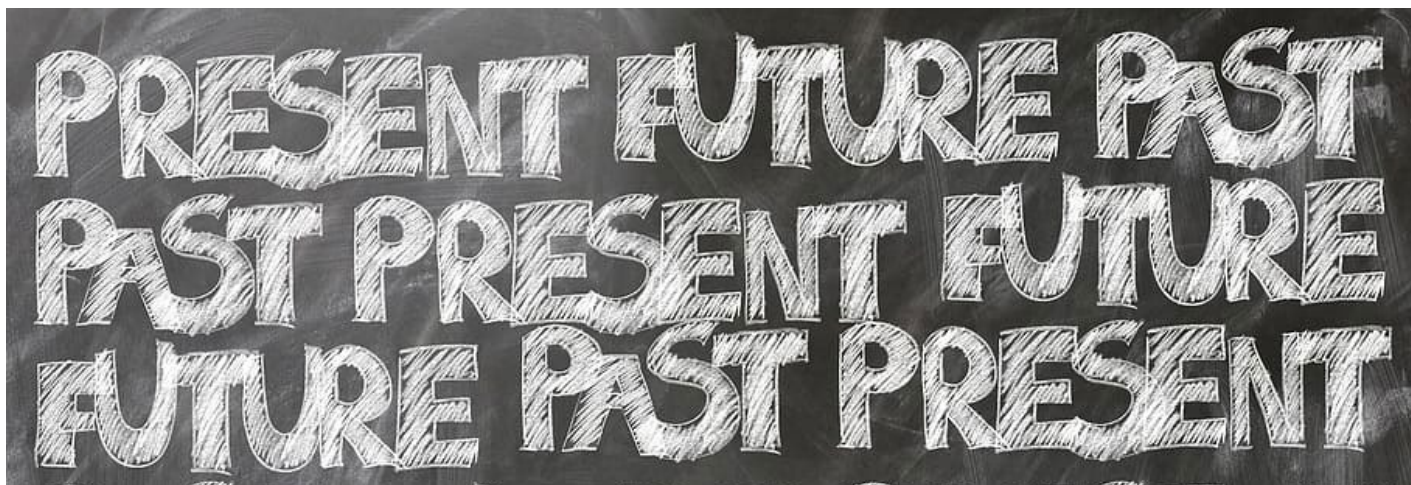 PRESENT FUTURE PAST
PAST PRESENT FUTURE
FUTURE PAST PRESENT